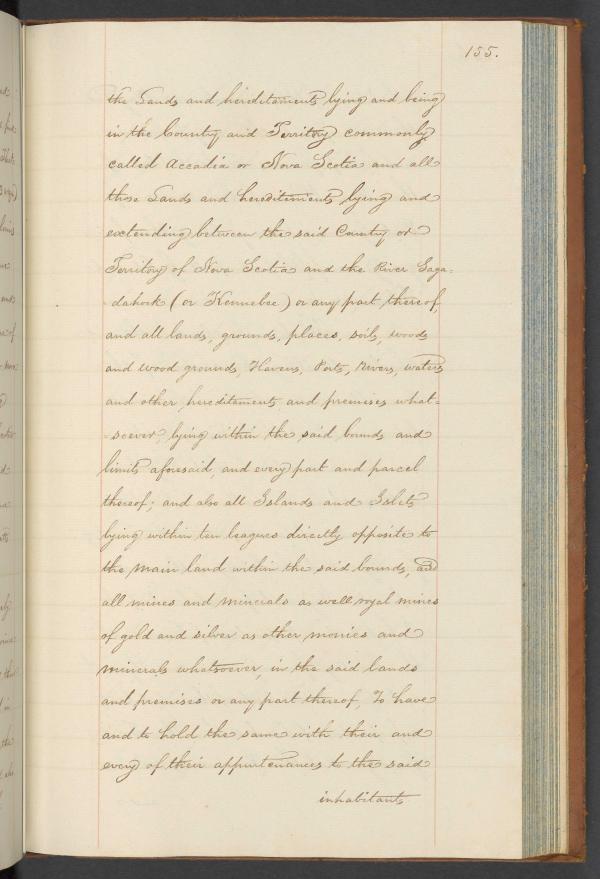 155.
the Lands and hereditaments lying and being
in the Country and Territory commonly
called Accadia or Nova Scotia and all
those Lands and hereditements lying and
extending between the said Country or
Territory of Nova Scotia and the River Saga-
dahock (or Kennebec) or any part thereof,
and all lands, grounds, places, soils, woods
and wood grounds, Havens, Ports, Rivers, waters
and other hereditaments and premises what=
=soever, lying within the said bounds and
limits aforesaid, and every part and parcel
thereof; and also all Islands and Islets
lying within ten leagues directly opposite to
the main land within the said bounds, and
all mines and minerals as well royal mines
of gold and silver as other monies and
minerals whatsoever, in the said lands
and premises or any part thereof, To have
and to hold the same with their and
every of their appurtenances to the said
inhabitants